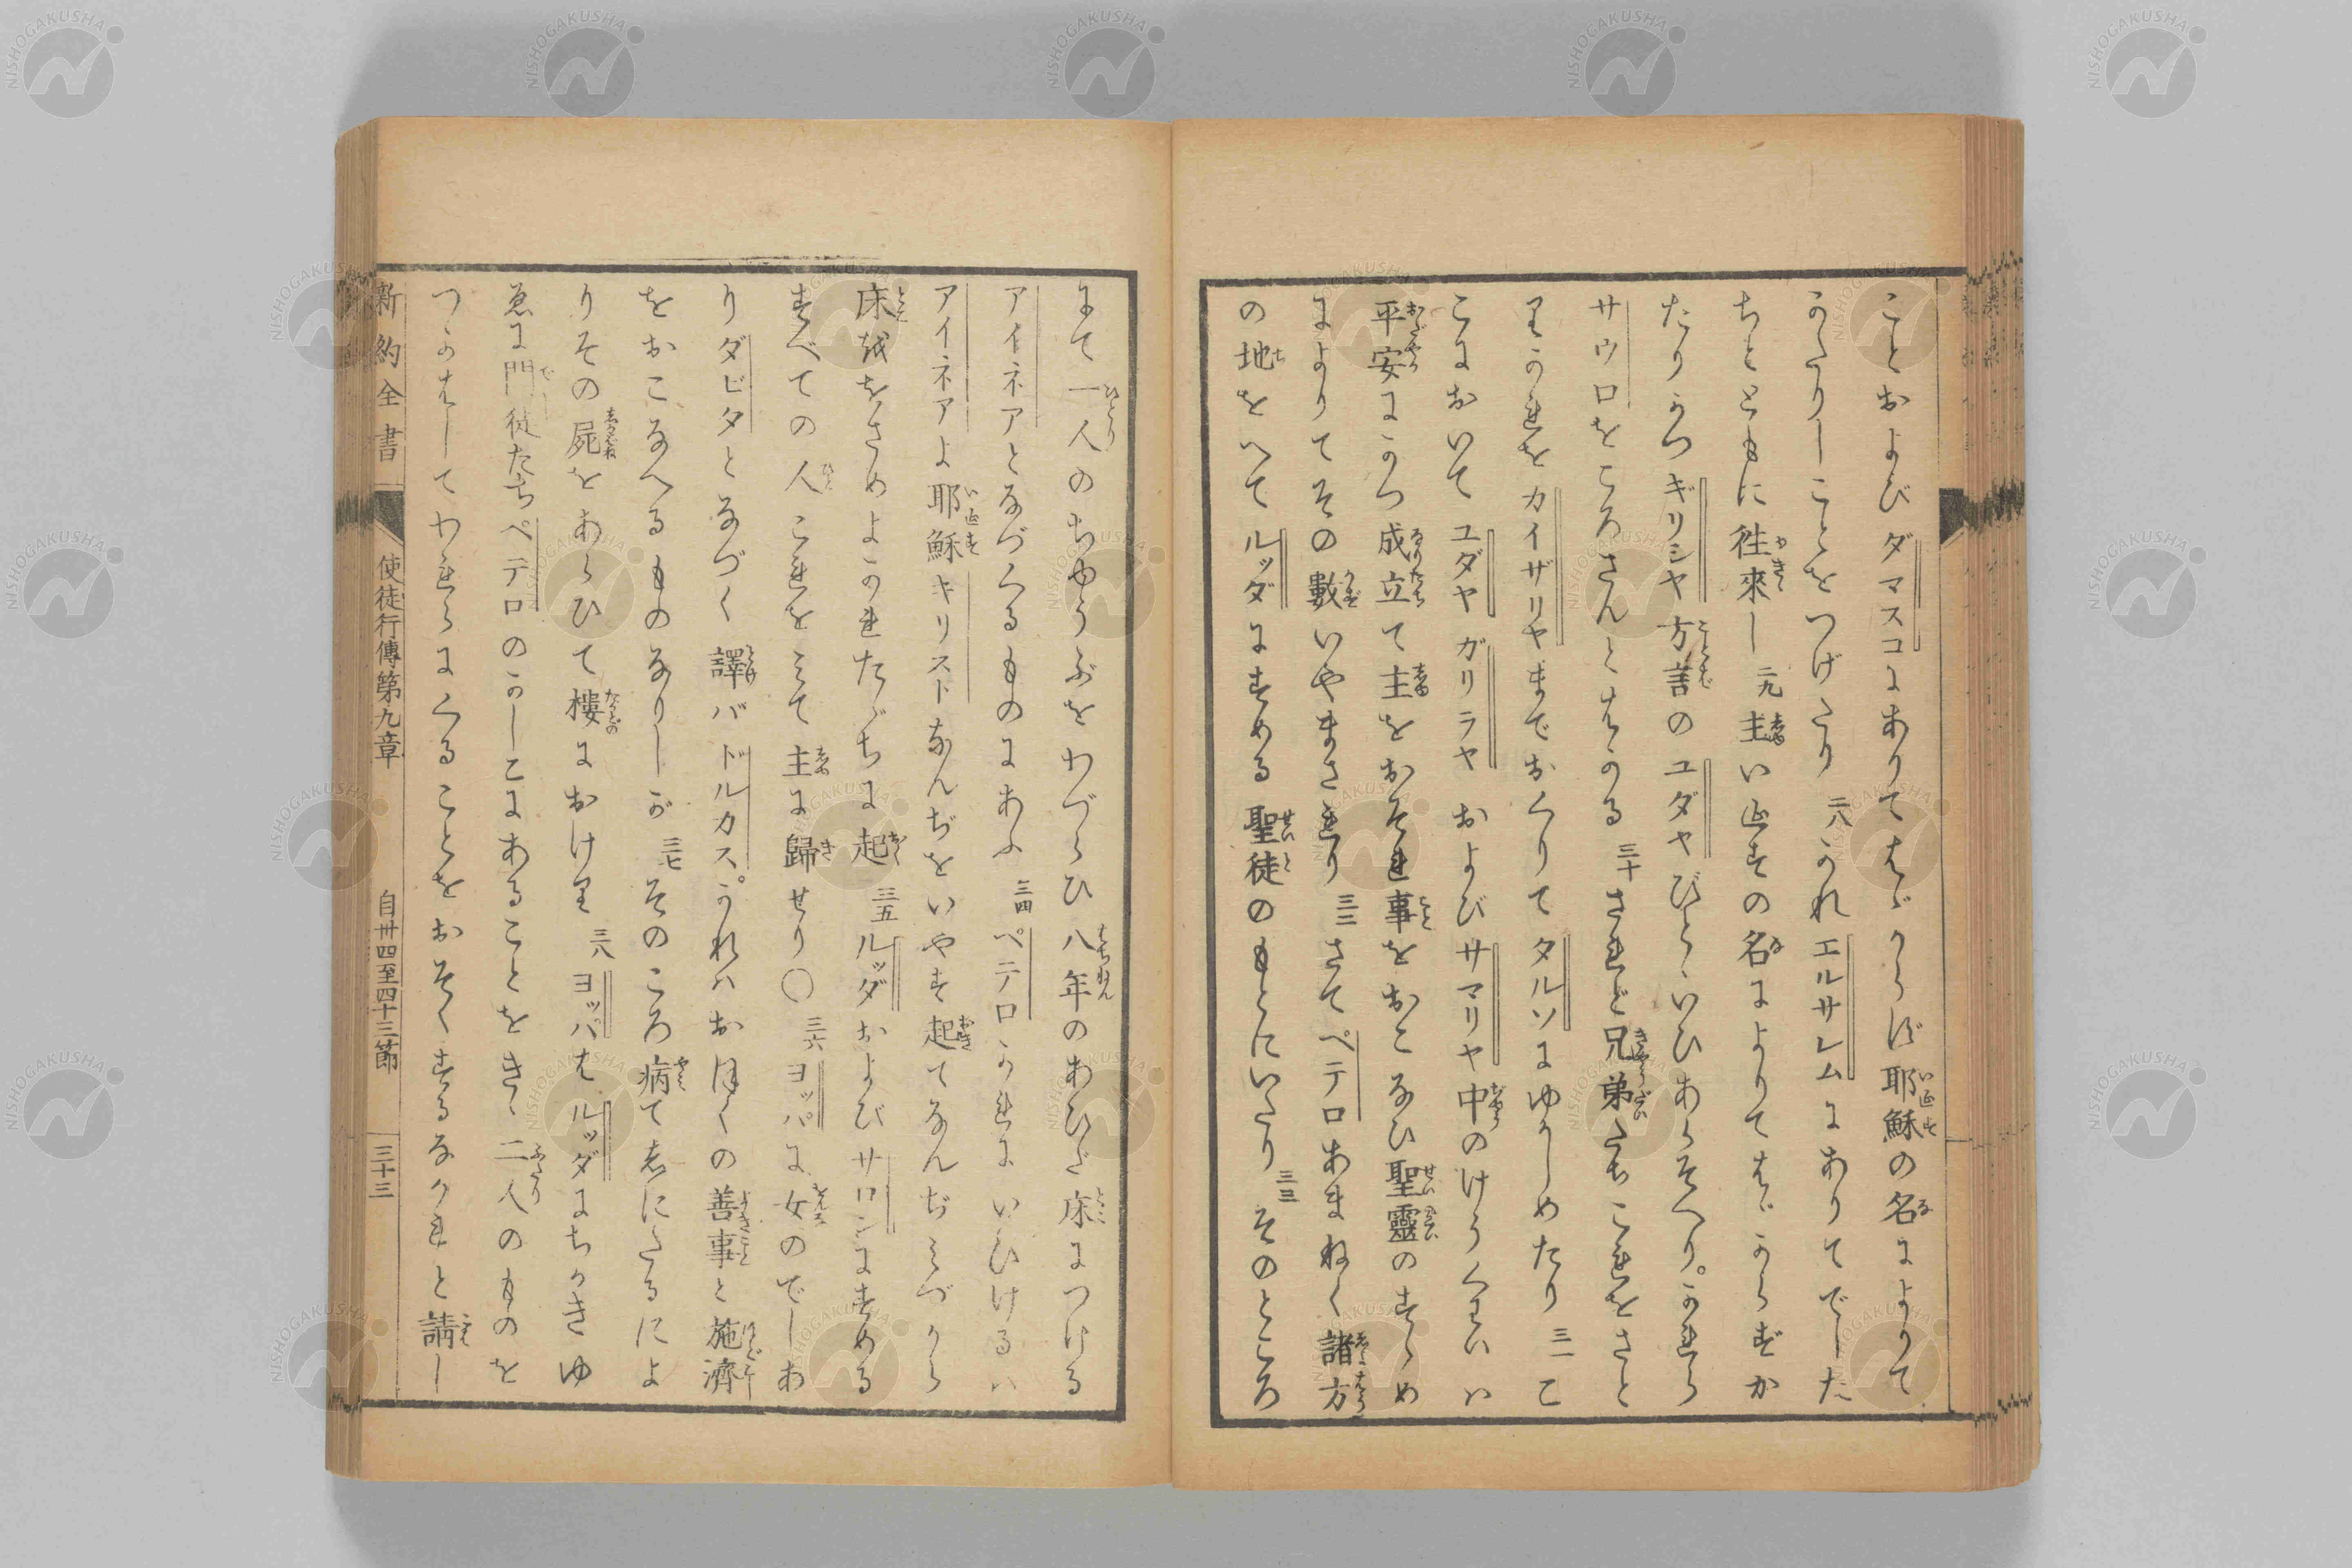 ことおよびダマスコにありてはゞからず耶穌の名によりて
かたりしことをつげたり 二八 かれエルサレムにありてでした
ちとともに徃來し 二九 主いエすの名によりてはゞからずか
たりかつギリシヤ方言のユダヤびとゝいひあらそへり。かれら
サウロをころさんとはかる 三十 されど兄弟たちこれをさと
りかれをカイザリヤまでおくりてタルソにゆかしめたり 三一 こ
こにおいてユダヤ ガリラヤ およびサマリヤ中のけうくわいハ
平安にかつ成立て主をおそれ事をおこなひ聖靈のすゝめ
によりてその數いやまされり 三二 さてペテロあまねく諸方
の地をへてルッダにすめる聖徒のもとにいたり 三三 そのところ
にて一人のちゆうぶをわづらひ八年のあひだ床につける
アイネアとなづくるものにあふ 三四 ペテロかれにいひけるハ
アイネアよ耶穌キリストなんぢをいやす起てなんぢみづから
床をおさめよかれたゞちに起 三五 ルッダおよびサロンにすめる
すべての人これをみて主に歸せり〇 三六 ヨッパに女のでしあ
りダビタとなづく譯バドルカス。かれハおほくの善事と施濟
をおこなへるものなりしが 三七 そのころ病て志にたるによ
りその屍をあらひて樓におけり 三八 ヨッパはルッダにちかきゆ
ゑに門徒たちペテロのかしこにあることをきゝ二人のものを
つかはしてわれらにくることをおそくするなかれと請し
新約全書 使徒行傳第九章 自卅四至四十三節 三十三